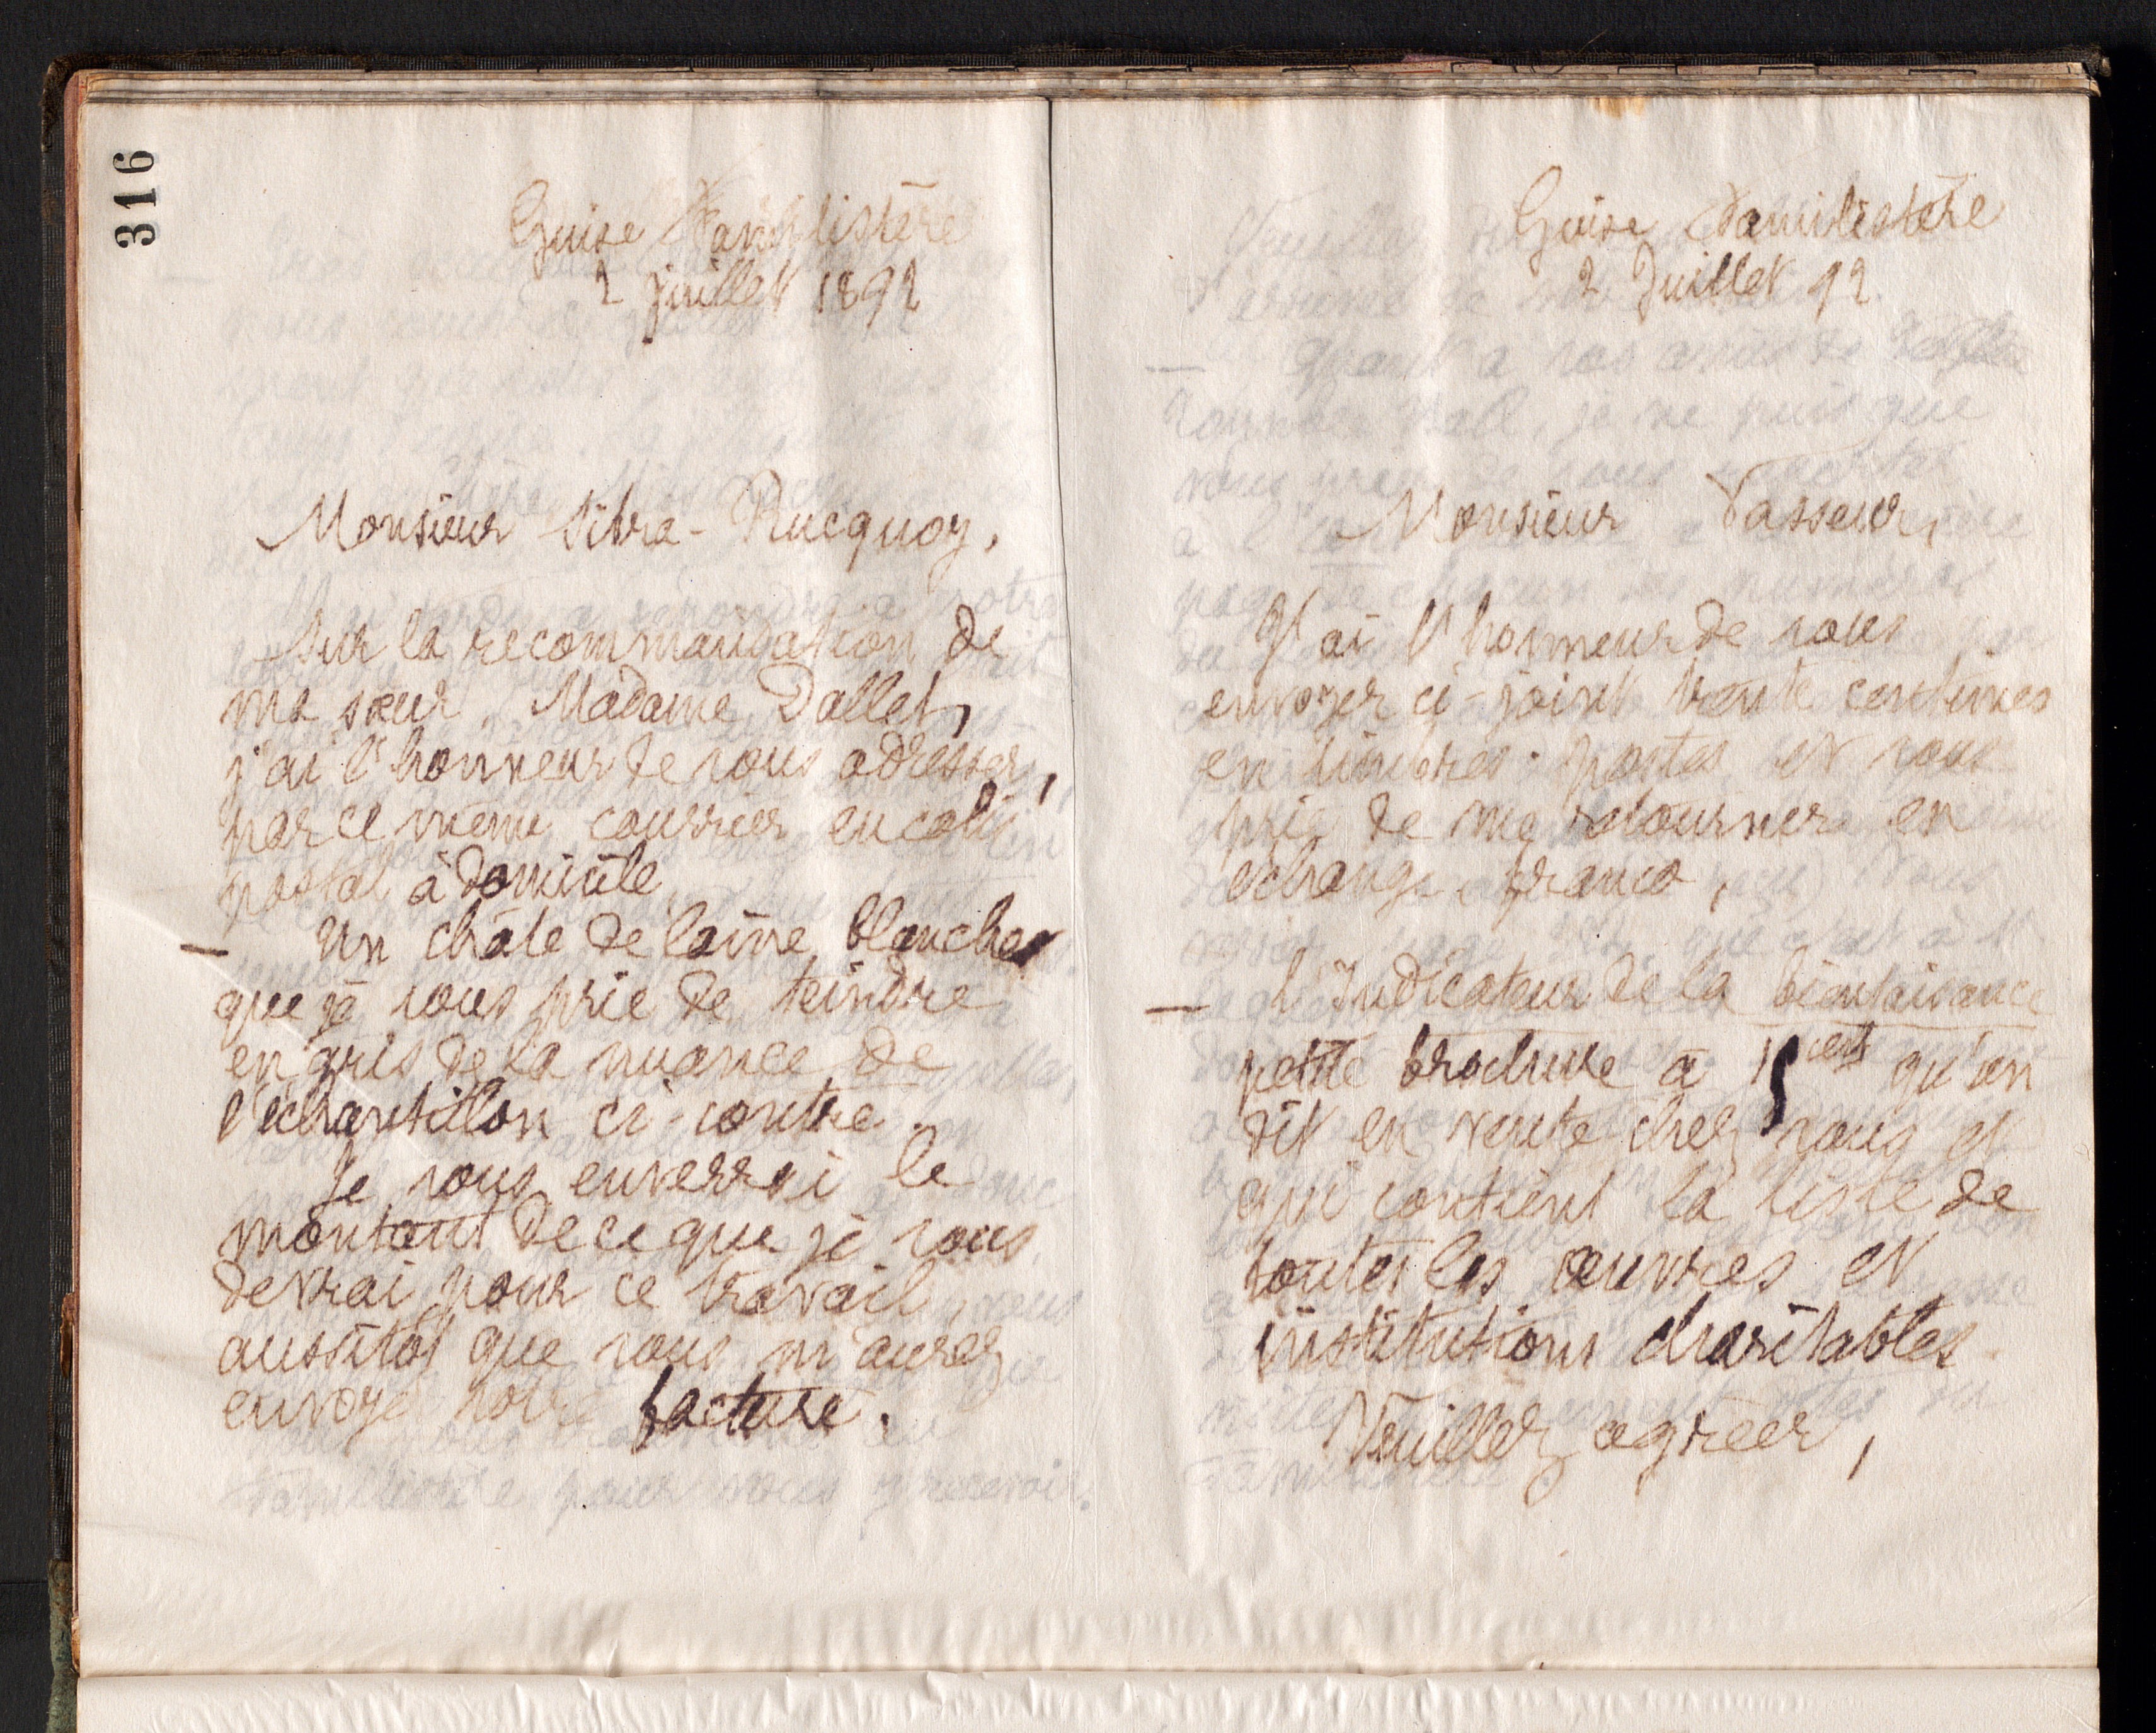 316
Guise Familistère
2 juillet 1892
Monsieur Sibra-Rucquoy,
Sur la recommandation de
ma sœur, Madame Dallet,
j'ai l'honneur de vous adresser,
par ce même courrier en colis
postal à domicile
— Un châle de laine blanche
que je vous prie de teindre
en gris de la nuance de
l'échantillon ci-contre.
Je vous enverrai le
montant de ce que je vous
devrai pour ce travail,
aussitôt que vous m'aurez
envoyé votre facture.
Guise Familistère
2 Juillet 92
Monsieur Vasseur,
J'ai l'honneur de vous
envoyer ci-joint trente centimes
en timbres-postes et vous
prie de me retourner en
échange franco,
— l'Indicateur de la bienfaisance
petite brochure à 15 cent qu'on
dit en vente chez vous et
qui contient la liste de
toutes les œuvres et
institutions charitables.
Veuillez agréer,